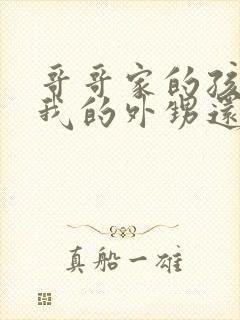 哥哥家的孩
我的外甥還
真船一雄